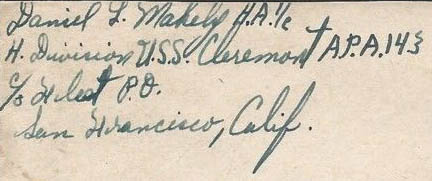 Daniel L. Makely H.A. 1/c
H. Division U.S.S. Cleremont A.P.A. 143
c/o Fleet P.O.
San Francisco, Calif.